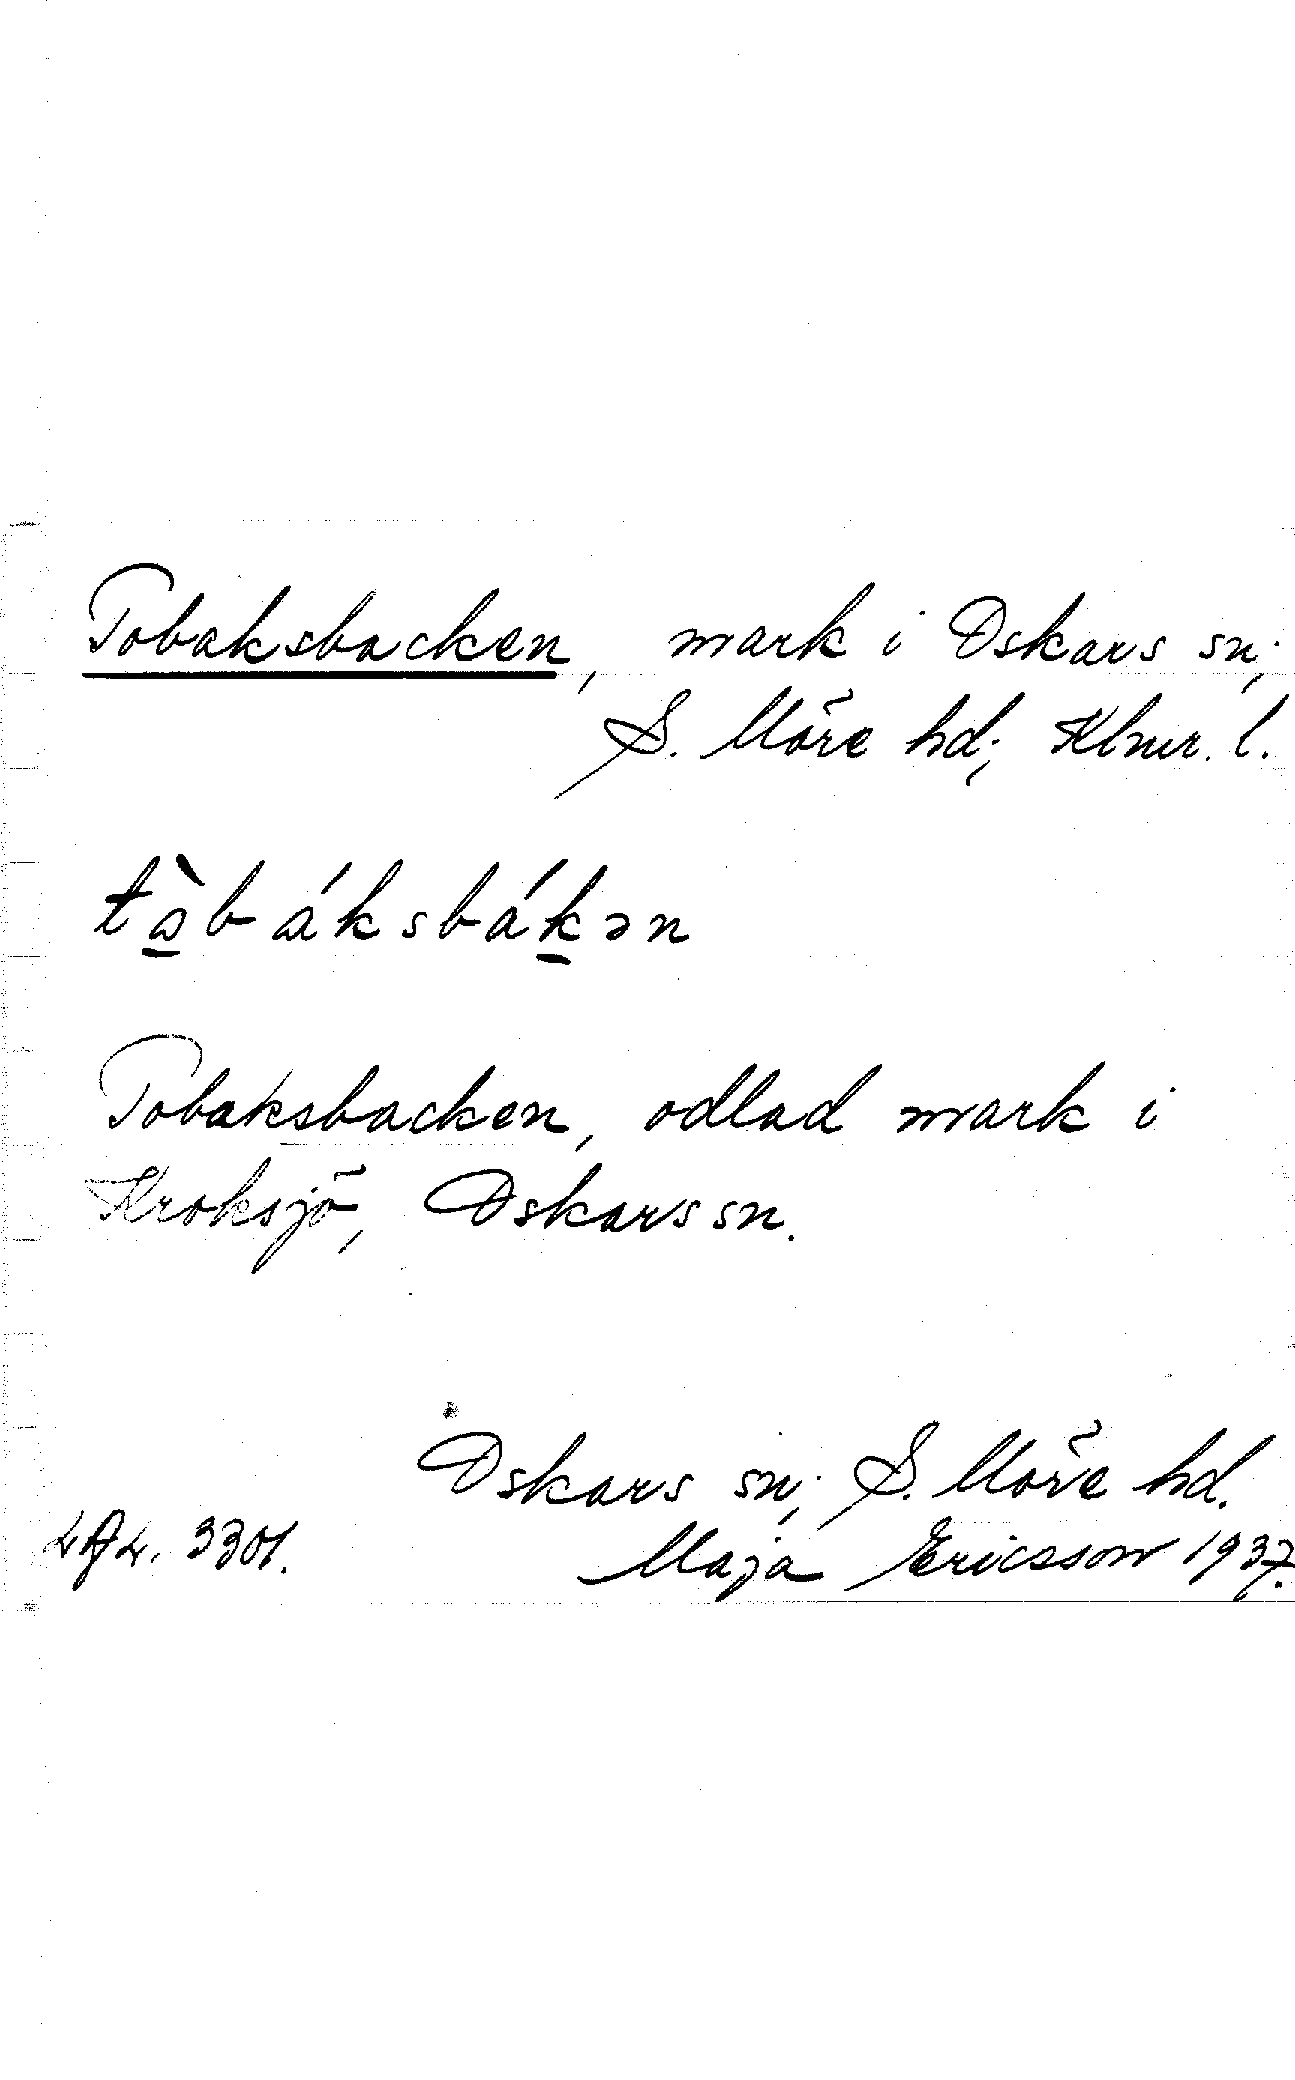 Tobaksbacken, mark i Oskars sn;
S. Möre hd; Klmr. l.
tàbáksbákən
Tobaksbacken, odlad mark i
Kroksjö, Oskars sn.
Oskars sn; S. Möre hd.
3301. Maja Ericsson 1937.